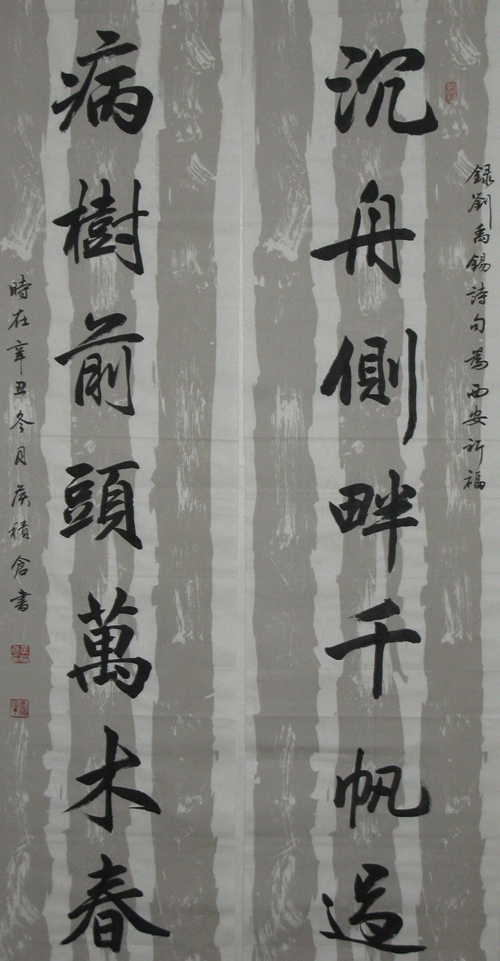 録劉禹錫詩句為西安祈福
沉舟側畔千帆過
病樹前頭萬木春
時在辛丑冬月侯積倉書